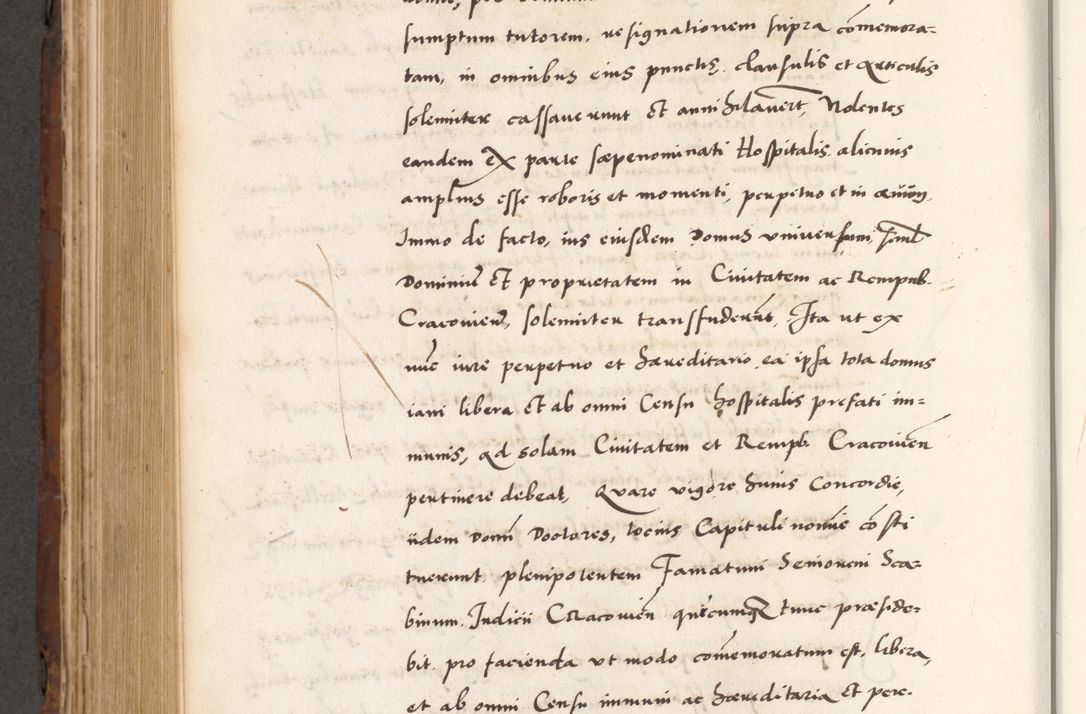 sumptum tutorem, resignationem supra cōmemora=
tam, in omnibus eius punctis, clausulis et articulis
solemniter cassaverunt et annihilaver̄t, Nolentes
eandem ex parte sæpenominati Hospitalis alicuius
amplius esse roboris et momenti, perpetuo et in
Immo de facto, ius eiusdem Domus universum, simul
Dominiū et proprietatem in Civitatem ac Rempub.
Cracovien̄, solemniter transfuderūt, Ita ut ex
nūc iure perpetuo et hæreditario, ea ipsa tota domus
iam libera et ab omni Censu hospitalis prefati im=
munis, ad solam Civitatem et Rempb. Cracovien̄
pertinere debeat, Quare vigore huius Concordie,
iidem Domī Doctores, tocius Capituli nomīe cōsti
tuerunt plenipotentem Famatum Seniorem Sca=
binum Iudicii Cracovien̄ quēcumqz tunc præside=
bit pro facienda ut modo cōmemoratum est, libera,
et ab omni Censu immuni ac hæreditaria et per=